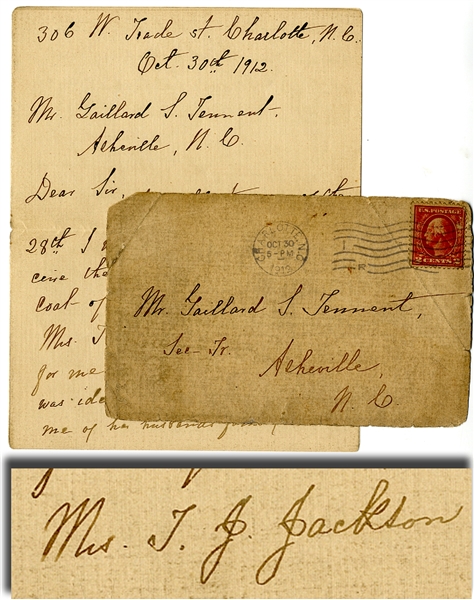 306 W. Trade st. Charlotte, N.C.
Oct. 30th 1912.
Mr. Gaillard S. Tennent.
Asheville, N.C.
Dear Sir, the
28th I
ceive the
coat-of
Mrs. T
for me
was ide
me of her husbands
CHARLOTTE, N.C.
OCT 30
5-PM
1912
U.S. POSTAGE
2 CENTS 2
Mr. Gaillard S. Tennent,
Sec-Tr.
Asheville,
N.C.
Mrs. T. J. Jackson